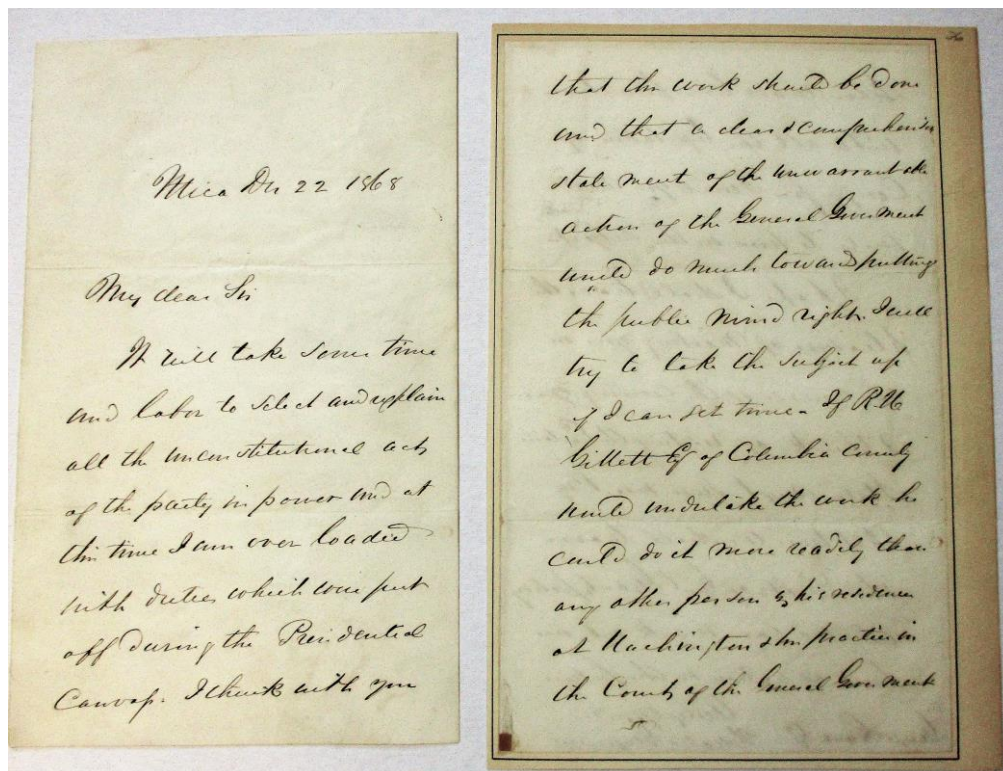 Utica Dec 22 1868
My dear Sir
It will take some time
and labor to select and explain
all the unconstitutional acts
of the party in power and at
this time I am over loaded
with duties which were put
off during the Presidential
Canvass. I think with you
that the work should be done
and that a clear & comprehensive
statement of the unwarrantable
action of the General Government
would do much toward putting
the public mind right. I will
try to take the subject up
if I can get time - If R. H.
Gillett Esq of Columbia County
would undertake the work he
could do it more readily than
any other person by his residence
at Washington & his practice in
the Courts of the General Government